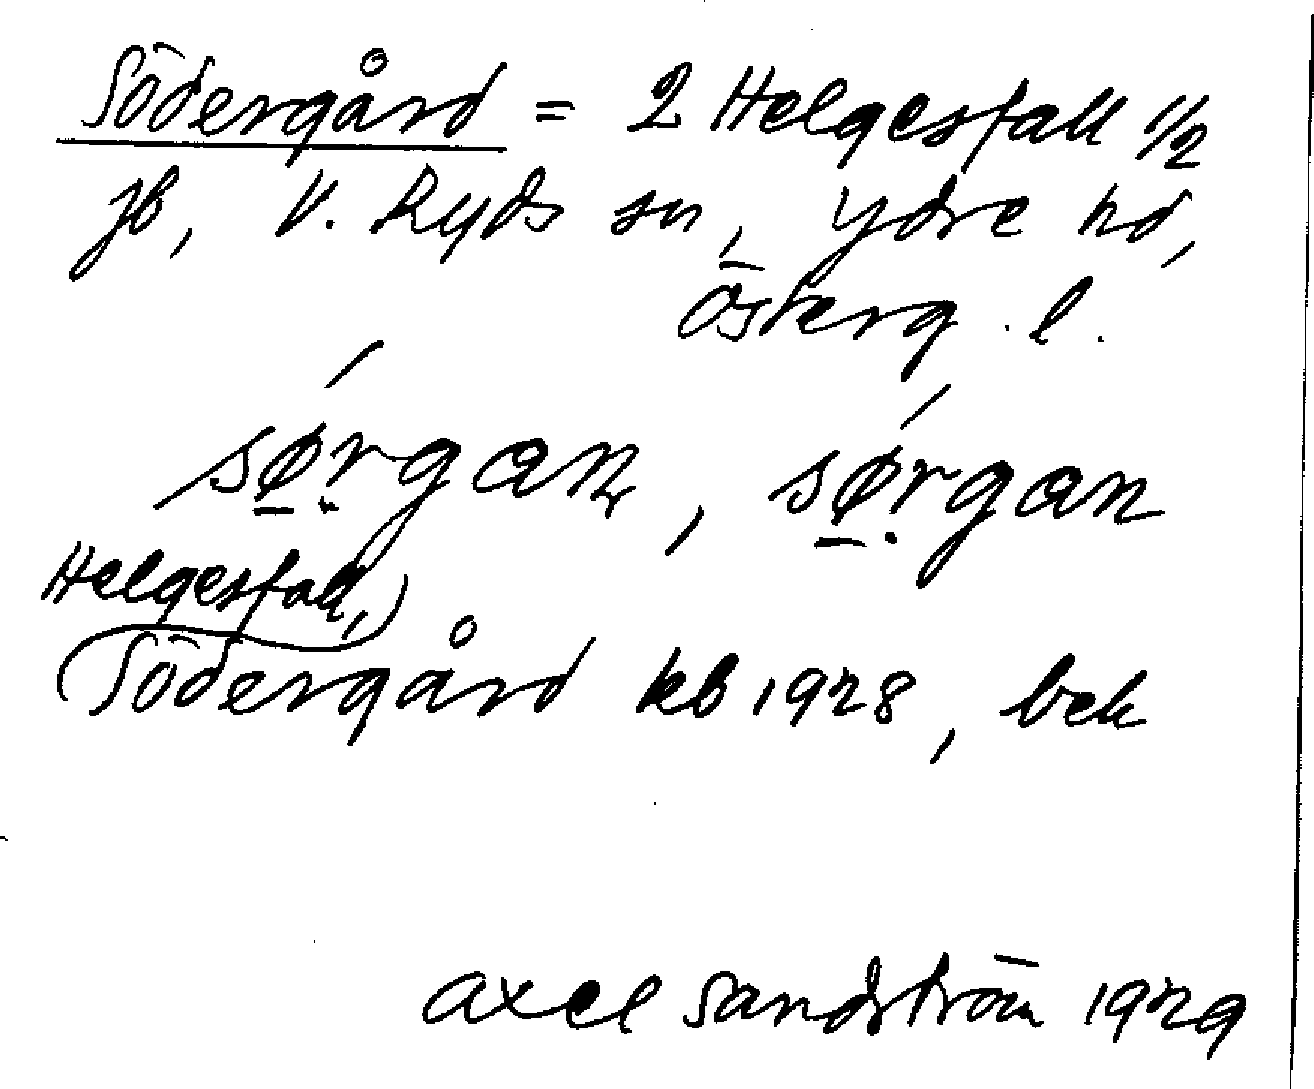 Södergård = 2 Helgesfall 1/2
jb, V. Ryds sn, Ydre hd,
Österg. l.
sø̱̣rgan, sø̱̣rgan
Helgesfall,
Södergård kb 1928, bek
Axel Sandström 1929